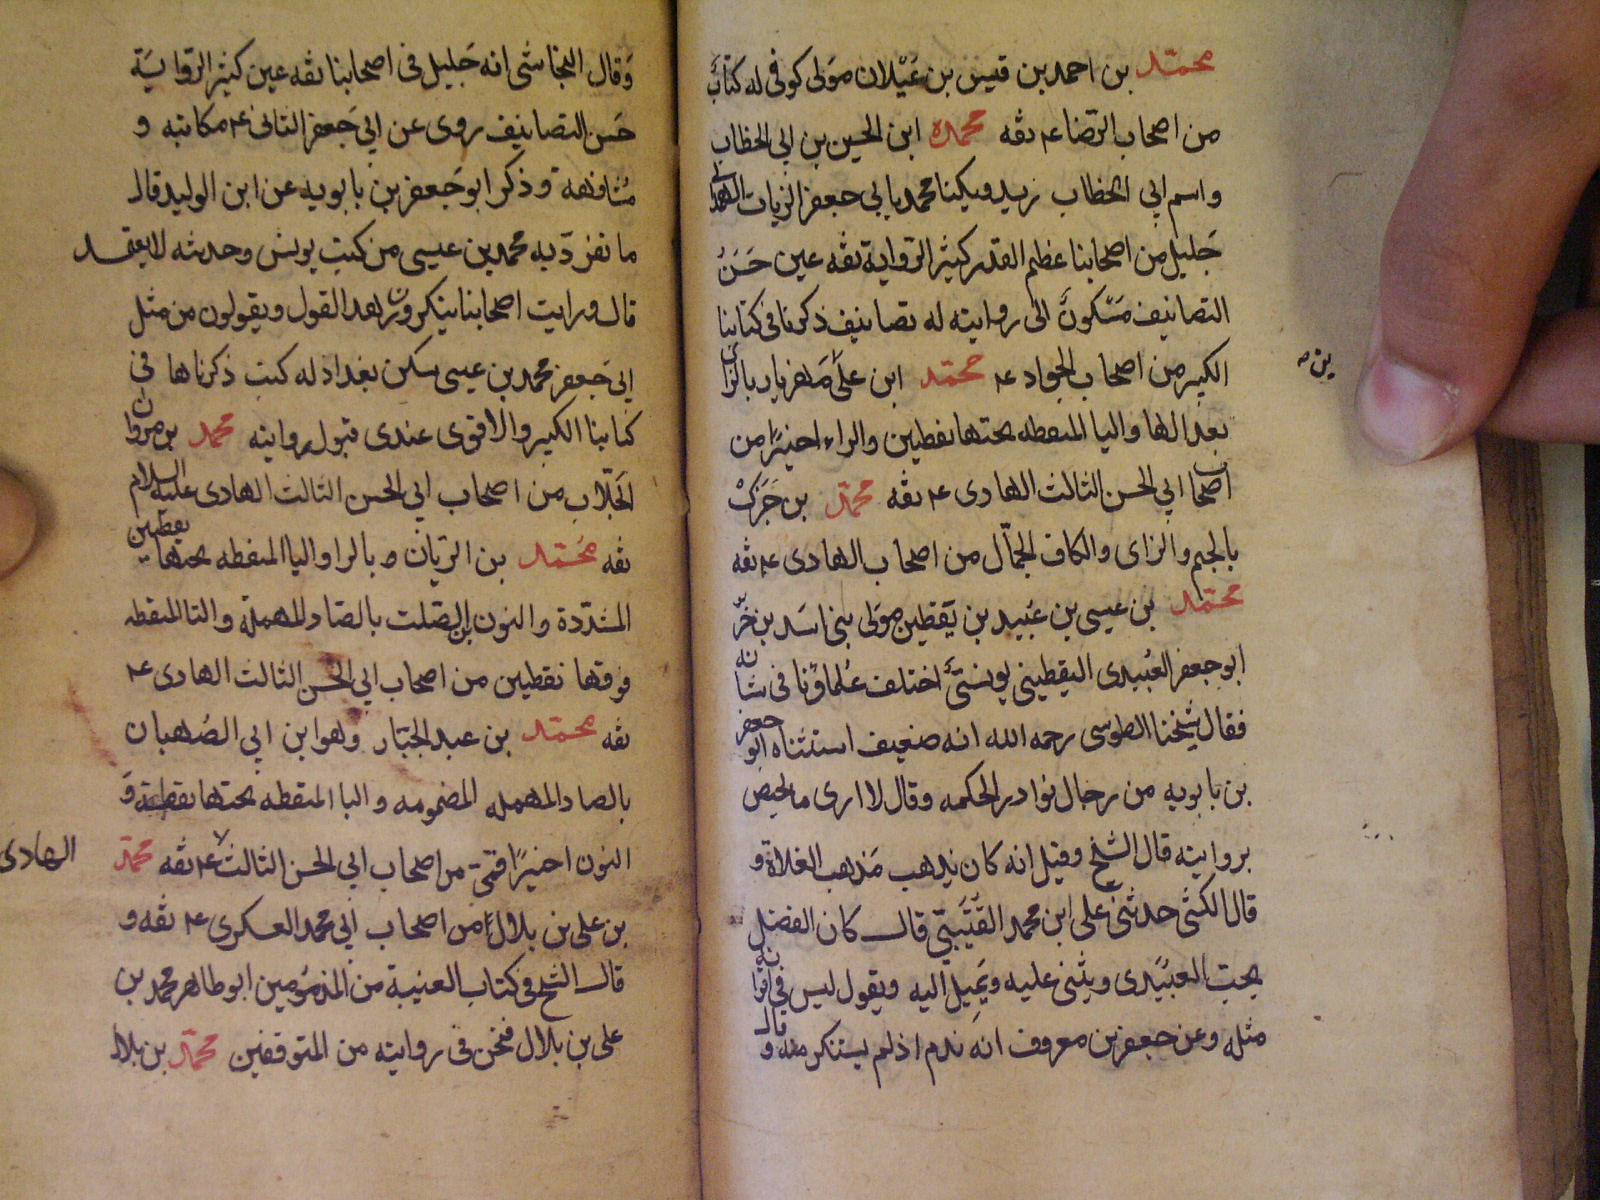 محمد بن احمد بن قيس بن غيلان مولى كوفى له كتاب
من اصحاب الرضا ع ثقه محمد ابن الحسين بن ابى الخطاب
واسم ابى الخطاب زيد ويكنا محمد بابى جعفر الزيات الهمدانى
جليل من اصحابنا عظيم القدر كثير الرواية ثقه عين حَسَنُ
التصانيف مسكون الى روايته له تصانيف ذكرنا فى كتابنا
الكبير من اصحاب الجواد ع محمد ابن على مهزيار بالزاى
ين
بعد الها واليا المنقطه تحتها نقطين والراء اخيرًا من
اصحاب ابى الحسن الثالث الهادى ع ثقه محمد بن جَزَك
بالجيم والزاى والكاف الجمّال من اصحاب الهادى ع ثقه
محمد بن عيسى بن عُبيد بن يَقطين مولى بنى اسَد بن خز
ابو جعفر العُبيدى اليقطينى يونسىّ اختلف عُلماؤنا فى شانه
فقال شيخنا الطوسى رحمه الله انه ضعيف استثناه ابو جعفر
بن بابويه من رجال نوادر الحكمه وقال لا ارى ما يختص
بروايته قال الشيخ وقيل انه كان يذهب مَذهب الغلاة و
قال الكشى حدثنى على ابن محمد القُتَيبى قال كان الفضل
يحب العبيدى ويثنى عليه ويَميل اليه ويقول ليس فى اقرانه
مثله وعن جعفر بن معروف انه ندم اذ لم يستنكر منه و قال
وَقال النجاشى انه جَليل فى اصحابنا ثقه عين كثير الرواية
حَسَن التصانيف روى عن ابى جَعفر الثانى ع مكاتبه و
مُشافهة وذكر ابو جَعفر بن بابويه عن ابن الوليد قال
ما تفرّد به محمد بن عيسى من كتب يونس وحديثه لا يعتمد
قال ورايت اصحابنا ينكرون هذا القول ويقولون من مثل
ابى جَعفر محمد بن عيسى سكن بغداد له كتب ذكرناها فى
كتابنا الكبير والاقوى عندى قبول روايته محمد بن مروان
الجَلّاب من اصحاب ابى الحسن الثالث الهادى عليه السلام
ثقه محمد بن الريّان بالرا واليا المنقطه تحتها نقطين
المشدّدة والنون بن الصلت بالصاد المهملة والتا المنقطه
فوقها نقطين من اصحاب ابى الحسن الثالث الهادى ع
ثقه محمد بن عبد الجبّار وهو ابن ابى الصُهبان
بالصاد المهمله المضمومه والبا المنقطه تحتها نقطة وَ
النون اخيرًا قمى من اصحاب ابى الحسن الثالث ع ثقه محمد
الهادى
بن على بن بلال من اصحاب ابى محمد العسكرى ع ثقه و
قال الشيخ فى كتاب الغيبة من المذمومين ابو طاهر محمد بن
على بن بلال فنحن فى روايته من المتوقفين محمد بن بلال